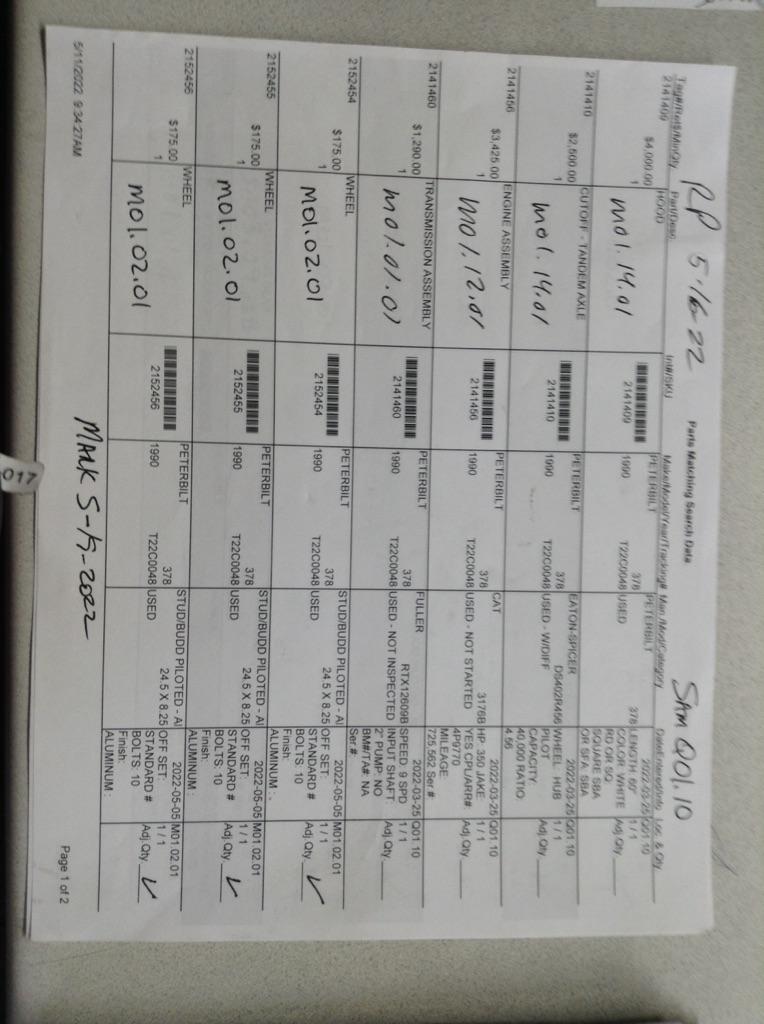 RP 5-16-22
Sam Q01.10
Parts Matching Search Data
Tag#/Ret$/Min/Qty Part/Desc Int#/SKU Make/Model/Year/Tracking# Man./Mod/Category Date Entered/Info Loc. & Qty
2141409 HOOD PETERBILT PETERBILT 2022-03-25 Q01 10
$4,000.00 378 378 LENGTH 60" 1 / 1
1 mo1.14.01 2141409 1990 T22C0048 USED COLOR WHITE Adj.Qty
RD OR SQ
SQUARE SBA
OR SFA SBA
2141410 CUTOFF - TANDEM AXLE PETERBILT EATON-SPICER 2022-03-25 Q01 10
$2,500.00 378 DS402R456 WHEEL HUB 1 / 1
1 mo1.14.01 2141410 1990 T22C0048 USED - W/DIFF PILOT Adj.Qty
CAPACITY
40,000 RATIO
4.56
2141456 ENGINE ASSEMBLY PETERBILT CAT 2022-03-25 Q01 10
$3,425.00 378 3176B HP 350 JAKE 1 / 1
1 mo1.12.01 2141456 1990 T22C0048 USED - NOT STARTED YES CPL/ARR# Adj.Qty
4P9770
MILEAGE
725,562 Ser #
2141460 TRANSMISSION ASSEMBLY PETERBILT FULLER 2022-03-25 Q01 10
$1,290.00 378 RTX12609B SPEED 9 SPD 1 / 1
1 mo1.01.01 2141460 1990 T22C0048 USED - NOT INSPECTED INPUT SHAFT: Adj.Qty
2" PUMP: NO
BM#/TA#: NA
Ser.#
2152454 WHEEL PETERBILT STUD/BUDD PILOTED - Al 2022-05-05 M01 02 01
$175.00 378 24.5 X 8.25 OFF SET: 1 / 1
1 mo1.02.01 2152454 1990 T22C0048 USED STANDARD # Adj.Qty ✓
BOLTS: 10
Finish:
ALUMINUM :
2152455 WHEEL PETERBILT STUD/BUDD PILOTED - Al 2022-05-05 M01 02 01
$175.00 378 24.5 X 8.25 OFF SET: 1 / 1
1 mo1.02.01 2152455 1990 T22C0048 USED STANDARD # Adj.Qty ✓
BOLTS: 10
Finish:
ALUMINUM :
2152456 WHEEL PETERBILT STUD/BUDD PILOTED - Al 2022-05-05 M01 02 01
$175.00 378 24.5 X 8.25 OFF SET: 1 / 1
1 mo1.02.01 2152456 1990 T22C0048 USED STANDARD # Adj.Qty ✓
BOLTS: 10
Finish:
ALUMINUM :
MARK 5-15-2022
5/11/2022 9:34:27AM
Page 1 of 2
017